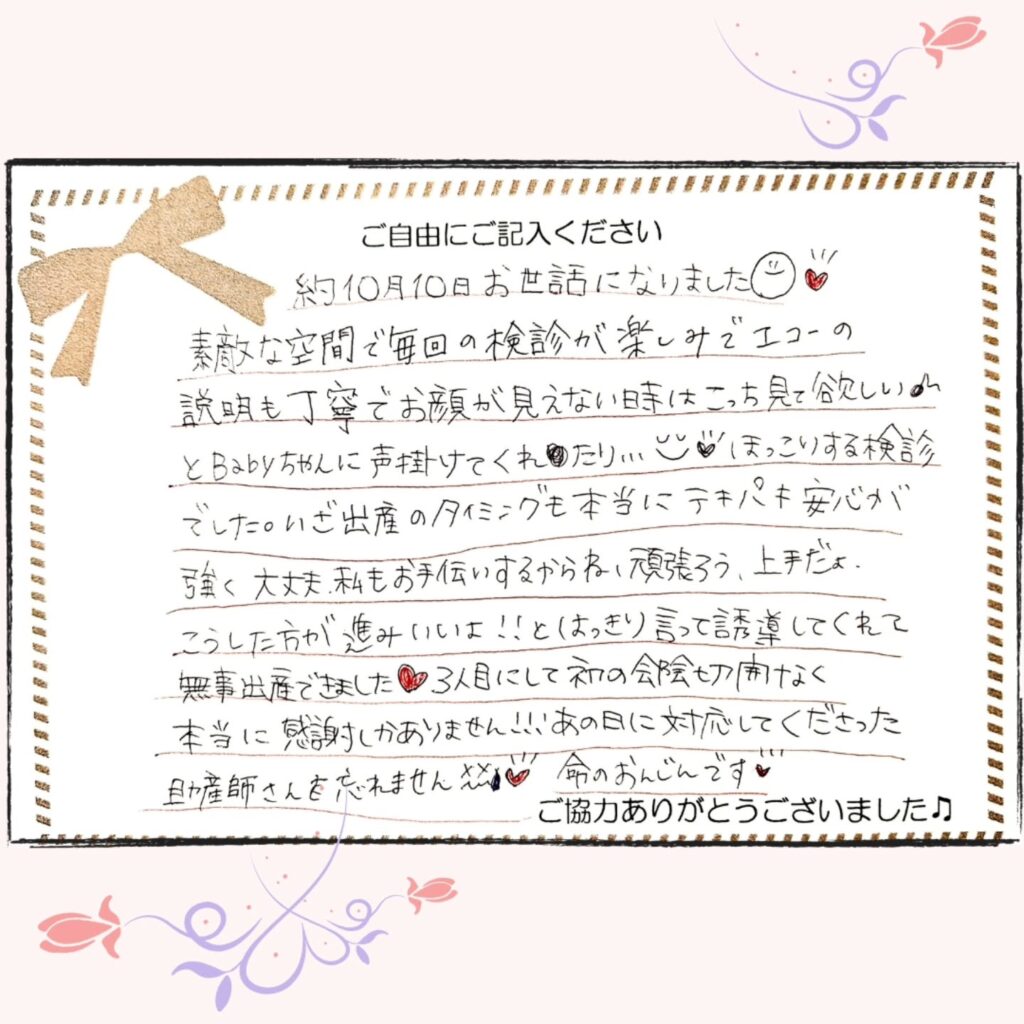 ご自由にご記入ください
約10月10日お世話になりました
素敵な空間で毎回の検診が楽しみでエコーの
説明も丁寧でお顔が見えない時はこっち見て欲しい♪
とBabyちゃんに声掛けてくれたり… ほっこりする検診
でした。いざ出産のタイミングも本当にテキパキ安心が
強く大丈夫、私もお手伝いするからね、頑張ろう、上手だよ.
こうした方が進みいいよ!!とはっきり言って誘導してくれて
無事出産できました♥3人目にして初の会陰切開なく
本当に感謝しかありません!!!あの日に対応してくださった
助産師さんを忘れません 命のおんじんです
ご協力ありがとうございました♫